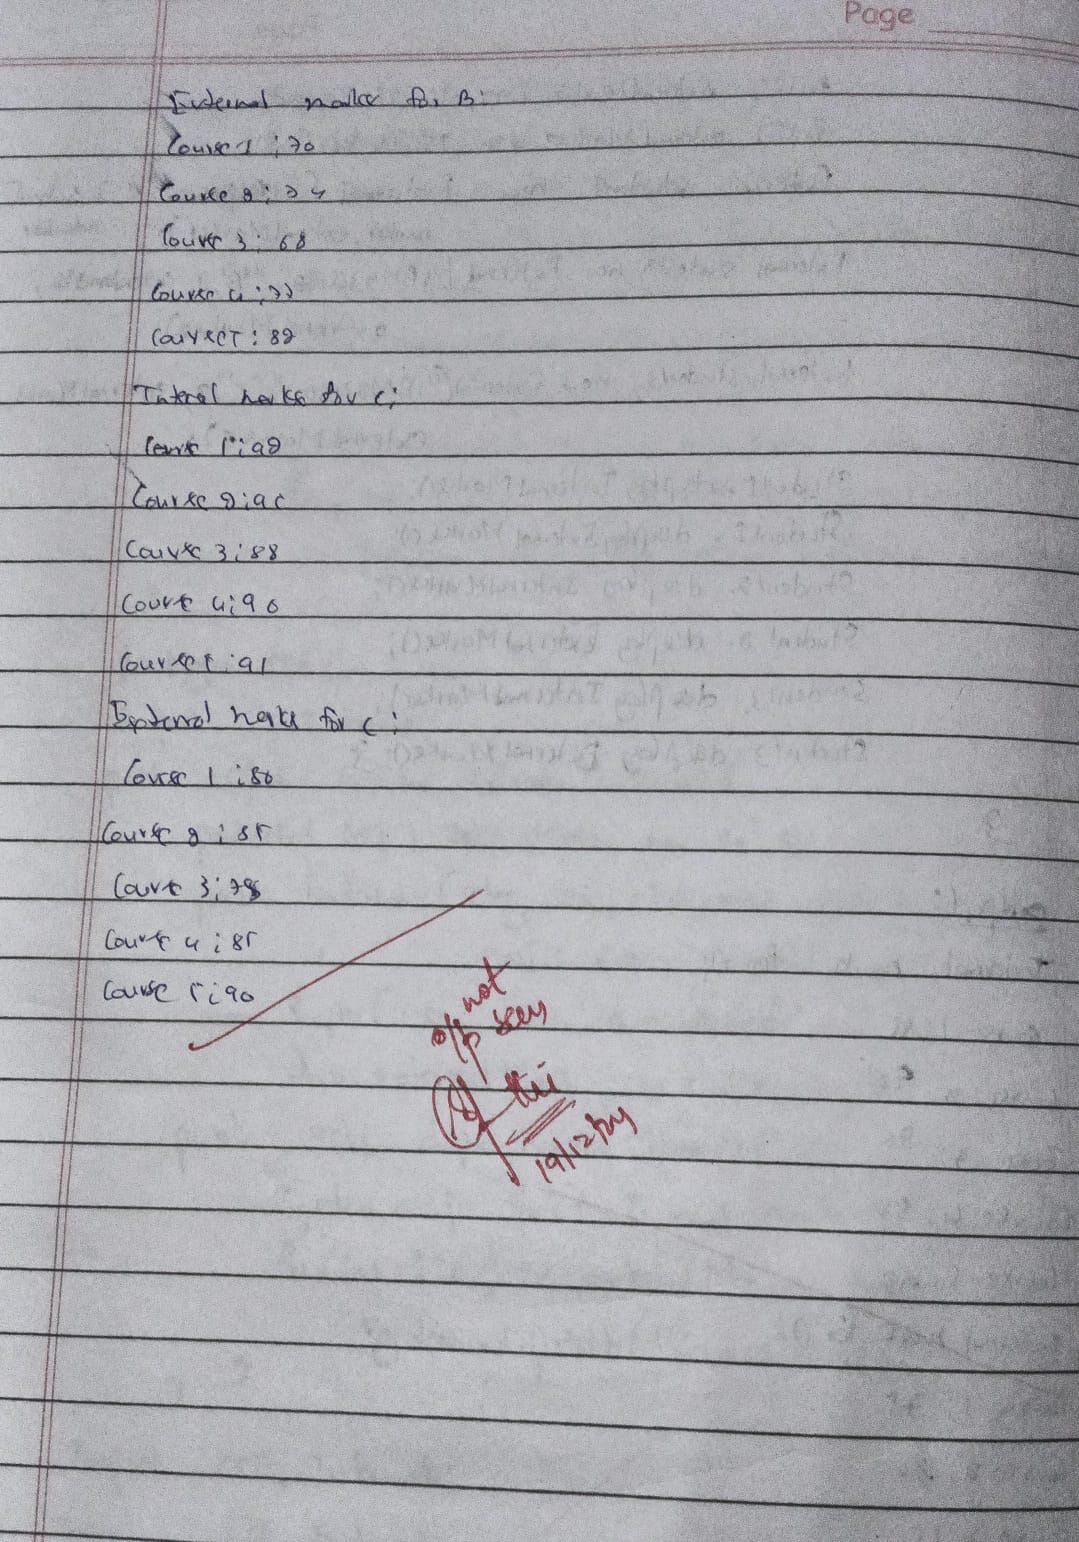 Page
External marks for B:
Course 1 : 70
Course 2 : 74
Course 3 : 68
Course 4 : 77
Course 5 : 82
Internal marks for C:
Course 1 : 92
Course 2 : 95
Course 3 : 88
Course 4 : 90
Course 5 : 91
External marks for C:
Course 1 : 80
Course 2 : 85
Course 3 : 78
Course 4 : 85
Course 5 : 90
o/p not seen
19/12/24